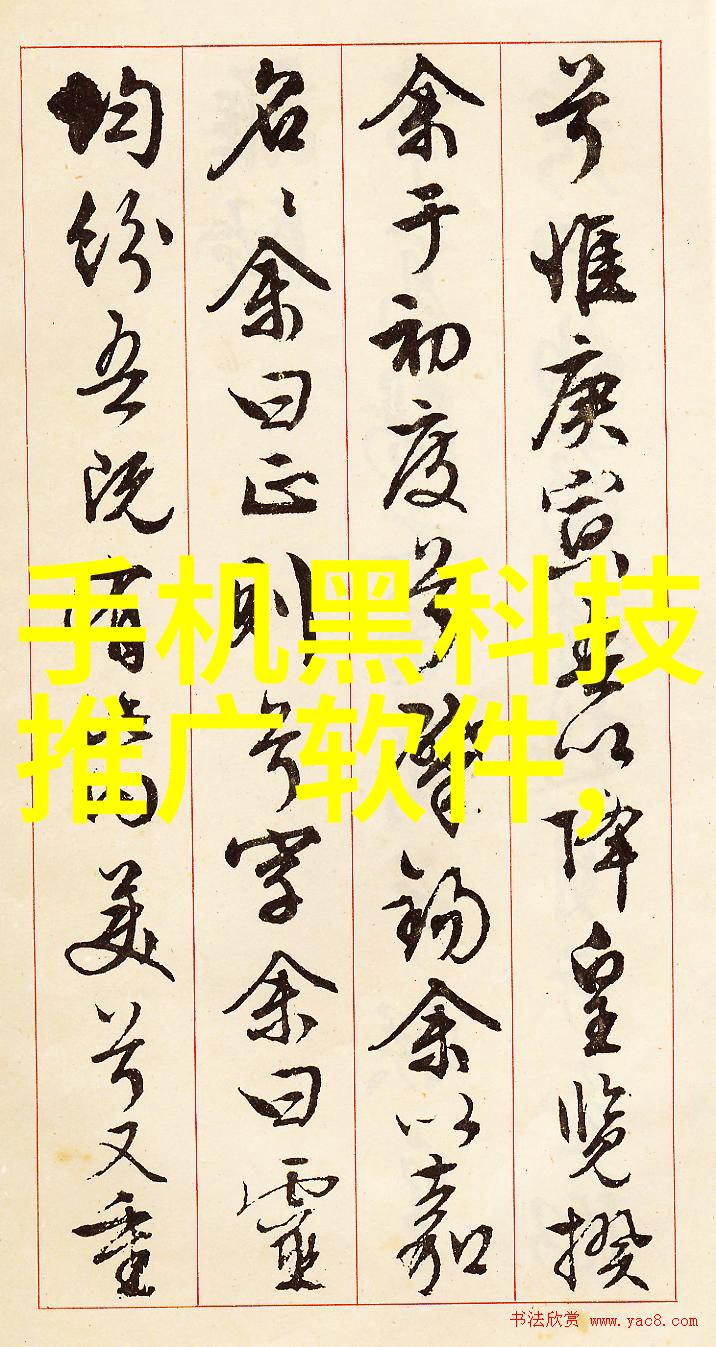 兮惟庚寅吾以降皇覽揆
余于初度兮肇錫余以嘉
名〻余曰正則兮字余曰靈
均紛吾既有此內美兮又重
手机黑科技
推广软件,
书法欣赏 www.yac8.com